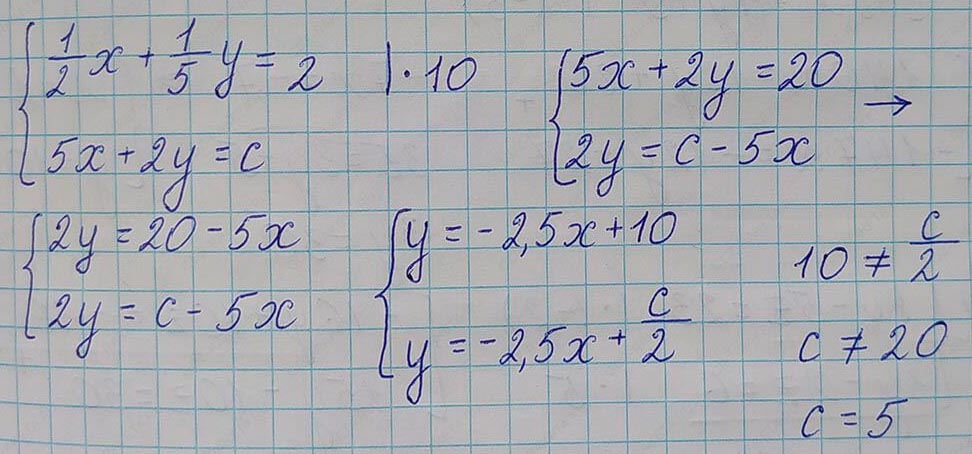 { 1/2 x + 1/5 y = 2 | · 10
5x + 2y = c
{ 5x + 2y = 20
2y = c - 5x →
{ 2y = 20 - 5x
2y = c - 5x
{ y = -2,5x + 10
y = -2,5x + c/2
10 ≠ c/2
c ≠ 20
c = 5